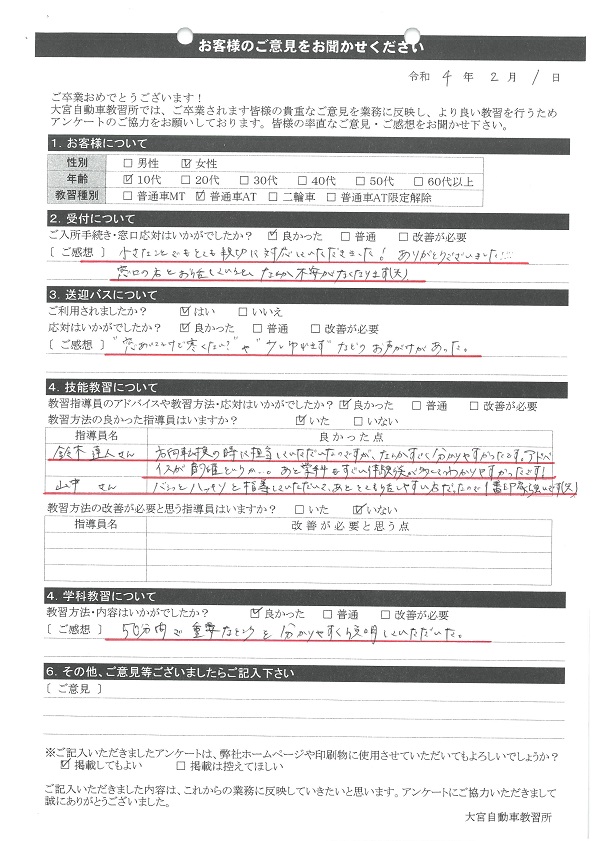 お客様のご意見をお聞かせください
令和 4 年 2 月 1 日
ご卒業おめでとうございます！
大宮自動車教習所では、ご卒業されます皆様の貴重なご意見を業務に反映し、より良い教習を行うため
アンケートのご協力をお願いしております。皆様の率直なご意見・ご感想をお聞かせ下さい。
1. お客様について
性別 □ 男性 ☑ 女性
年齢 ☑ 10代 □ 20代 □ 30代 □ 40代 □ 50代 □ 60代以上
教習種別 □ 普通車MT ☑ 普通車AT □ 二輪車 □ 普通車AT限定解除
2. 受付について
ご入所手続き・窓口応対はいかがでしたか？ ☑ 良かった □ 普通 □ 改善が必要
〔 ご感想 〕 小さなことでもとても親切に対応していただきました！ ありがとうございました!!
窓口の方とお話していると、なんか不安がなくなります(笑)
3. 送迎バスについて
ご利用されましたか？ ☑ はい □ いいえ
応対はいかがでしたか？ ☑ 良かった □ 普通 □ 改善が必要
〔 ご感想 〕 "窓あいてるけど寒くない?" や などのお声がけがあった。
4. 技能教習について
教習指導員のアドバイスや教習方法・応対はいかがでしたか？ ☑ 良かった □ 普通 □ 改善が必要
教習方法の良かった指導員はいますか？ ☑ いた □ いない
指導員名 良かった点
鈴木 直人さん 方向転換の時に担当していただいたのですが、なんかすごく分かりやすかったです。アドバ
イスが的確というか…。あと学科もすごい体験談が多くてわかりやすかったです！
山中 さん バシっとハッキリと指導していただいて、あととても話しやすい方だったので1番印象強いです(笑)
教習方法の改善が必要と思う指導員はいますか？ □ いた ☑ いない
指導員名 改善が必要と思う点
4. 学科教習について
教習方法・内容はいかがでしたか？ ☑ 良かった □ 普通 □ 改善が必要
〔 ご感想 〕 50分内で重要なところを分かりやすく説明していただいた。
6. その他、ご意見等ございましたらご記入下さい
〔 ご意見 〕
※ご記入いただきましたアンケートは、弊社ホームページや印刷物に使用させていただいてもよろしいでしょうか？
☑ 掲載してもよい □ 掲載は控えてほしい
ご記入いただきました内容は、これからの業務に反映していきたいと思います。アンケートにご協力いただきまして
誠にありがとうございました。
大宮自動車教習所